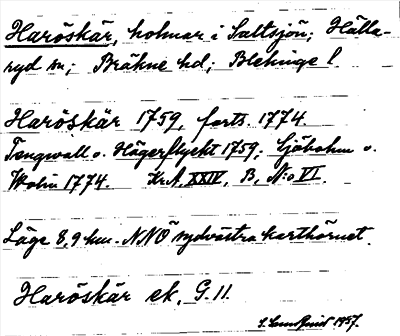 Haröskär, holmar i Saltsjön; Hälla-
ryd sn; Bräkne hd; Blekinge l.
Haröskär 1759, forts. 1774
Tengwall o. Hägerflyckt 1759; Sjöbohm o.
Wohn 1774. Kr.A. XXIV, B, N:o VI.
Läge 8,9 km. NNÖ sydvästra karthörnet.
Haröskär ek. G. 11.
1957.